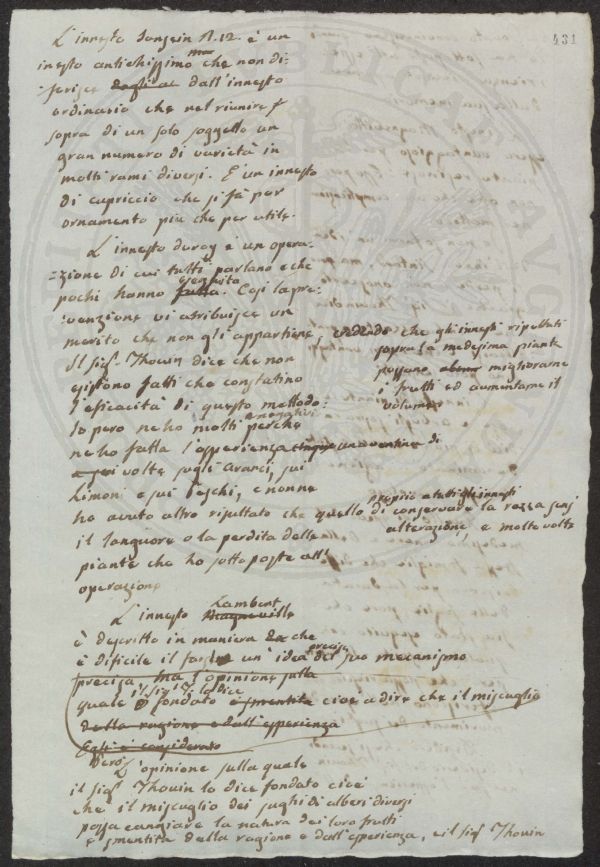 431
L'innesto Sengein N. 12 è un
innesto antichissimo ma che non di-
ferisce dagli al dall'innesto
ordinario che nel riunire
sopra di un solo soggetto un
gran numero di varietà in
molti rami diversi. E' un innesto
di capriccio che si fà per
ornamento più che per utile.
L'innesto duroy è un opera-
zione di cui tutti parlano e che
pochi hanno fatta eseguito. Così la pre-
venzione vi atribuisce un
merito che non gli appartiene, credendo che gli innesti ripettuti
sopra la medesima piante
possano migliorarne
i frutti ed aumentarne il
volume
Il sig.r Thouin dice che non
esistono fatti che constatino
l'eficacità di questo mettodo:
Io però ne ho molti negativi perche
ne ho fatta l'esperienza cinque una ventina di
volte sugli Aranci, sui
Limoni e sui Peschi, e non ne
ho avuto altro risultato che quello proprio a tutti gli innesti di conservare la razza senz
alterazione, e molte volte
il languore o la perdita delle
piante che ho sottoposte all'
operazione
L'innesto Magneville Lambert
è descritto in maniera che
è difficile il farsi un' idea precisa del suo mecanismo
precisa, ma l'opinione sulla
quale il sig.r T. lo dice fondato è smentita cioè a dire che il miscuglio
dalla ragione e dall'esperienza
Egli è considerato
Però L'opinione sulla quale
il sig.r Thouin lo dice fondato cioè
che il miscuglio dei sughi di alberi diversi
possa cangiare la natura dei loro frutti
è smentita dalla ragione e dall'esperienza, e il sig.r Thouin